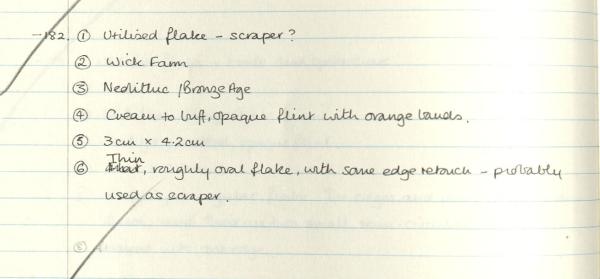 -182. ① Utilised flake - scraper?
② Wick Farm
③ Neolithic / Bronze Age
④ Cream to buff, opaque flint with orange bands.
⑤ 3cm x 4.2cm
Thin
⑥ Flat, roughly oval flake, with some edge retouch - probably
used as scraper.